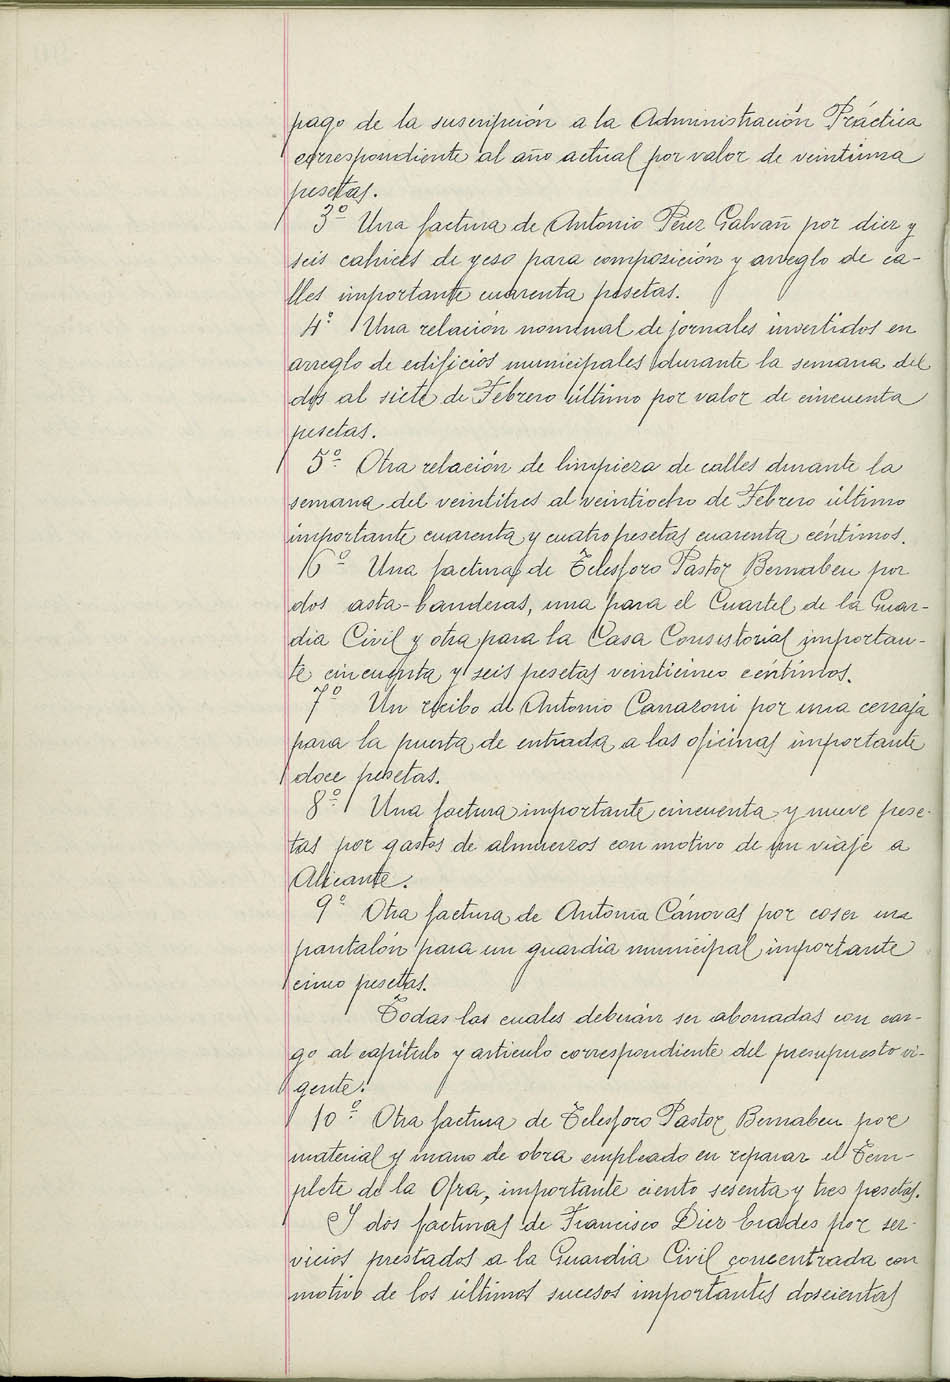 pago de la suscripción a la Administración Práctica
correspondiente al año actual por valor de veintiuna
pesetas.
3º Una factura de Antonio Pérez Galvañ por diez y
seis cahices de yeso para composición y arreglo de ca-
lles importante cuarenta pesetas.
4º Una relación nominal de jornales invertidos en
arreglo de edificios municipales durante la semana del
dos al siete de Febrero último por valor de cincuenta
pesetas.
5º Otra relación de limpieza de calles durante la
semana del veintitres al veintiocho de Febrero último
importante cuarenta y cuatro pesetas cuarenta céntimos.
6º Una factura de Telesforo Pastor Bernabeu por
dos asta-banderas, una para el Cuartel de la Guar-
dia Civil y otra para la Casa Consistorial importan-
te cincuenta y seis pesetas veinticinco céntimos.
7º Un recibo de Antonio Canazoni por una cerraja
para la puerta de entrada a las oficinas importante
doce pesetas.
8º Una factura importante cincuenta y nueve pese-
tas por gastos de almuerzos con motivo de un viaje a
Alicante.
9º Otra factura de Antonia Cánovas por coser un
pantalón para un guardia municipal importante
cinco pesetas.
Todas las cuales deberán ser abonadas con car-
go al capítulo y articulo correspondiente del presupuesto vi-
gente.
10º Otra factura de Telesforo Pastor Bernabeu por
material y mano de obra empleado en reparar el Tem-
plete de la Ofra, importante ciento sesenta y tres pesetas.
Y dos facturas de Francisco Diez Crades por ser-
vicios prestados a la Guardia Civil concentrada con
motivo de los últimos sucesos importantes doscientas